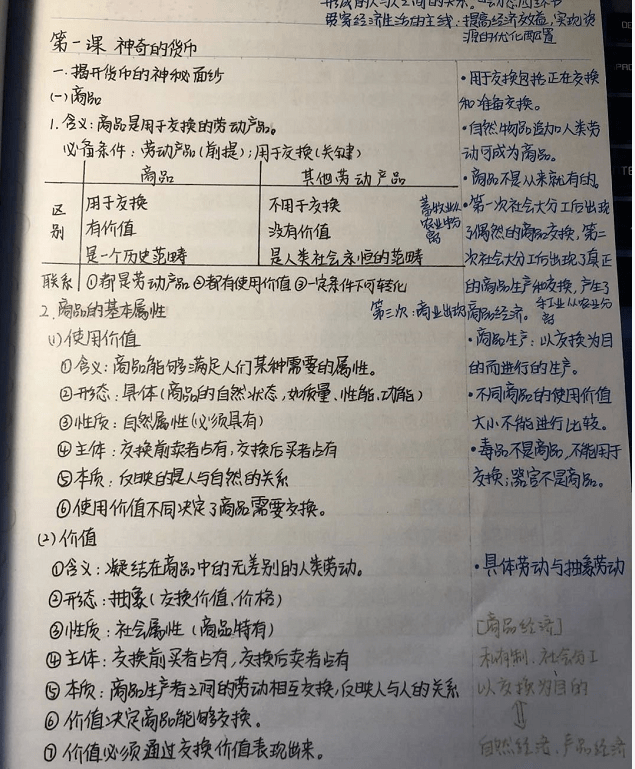 形成的人与人之间的关系。
贯穿经济生活的主线：提高经济效益，实现资
源的优化配置
第一课 神奇的货币
一．揭开货币的神秘面纱
(一)商品
1. 含义：商品是用于交换的劳动产品。
必备条件：劳动产品(前提)；用于交换(关键)
商品 其他劳动产品
区别 用于交换 不用于交换
有价值 没有价值
是一个历史范畴 是人类社会永恒的范畴
联系 ①都是劳动产品 ②都有使用价值 ③一定条件下可转化
2. 商品的基本属性
(1)使用价值
①含义：商品能够满足人们某种需要的属性。
②形态：具体(商品的自然状态，如质量、性能、功能)
③性质：自然属性(必须具有)
④主体：交换前卖者占有，交换后买者占有
⑤本质：反映的是人与自然的关系
⑥使用价值不同决定了商品需要交换。
(2)价值
①含义：凝结在商品中的无差别的人类劳动。
②形态：抽象(交换价值、价格)
③性质：社会属性(商品特有)
④主体：交换前买者占有，交换后卖者占有
⑤本质：商品生产者之间的劳动相互交换，反映人与人的关系
⑥价值决定商品能够交换。
⑦价值必须通过交换价值表现出来。
•用于交换包括正在交换
和准备交换。
•自然物品追加人类劳
动可成为商品。
•商品不是从来就有的。
•第一次社会大分工后出现
了偶然的商品交换，第二
次社会大分工后出现了真正
的商品生产和交换，产生了
商品经济。
畜牧业从
农业中分
离
手工业从农业分
离
第三次：商业出现
•商品生产：以交换为目
的而进行的生产。
•不同商品的使用价值
大小不能进行比较。
•毒品不是商品，不能用于
交换；器官不是商品。
•具体劳动与抽象劳动
[商品经济]
私有制、社会分工
以交换为目的
⇕
自然经济、产品经济